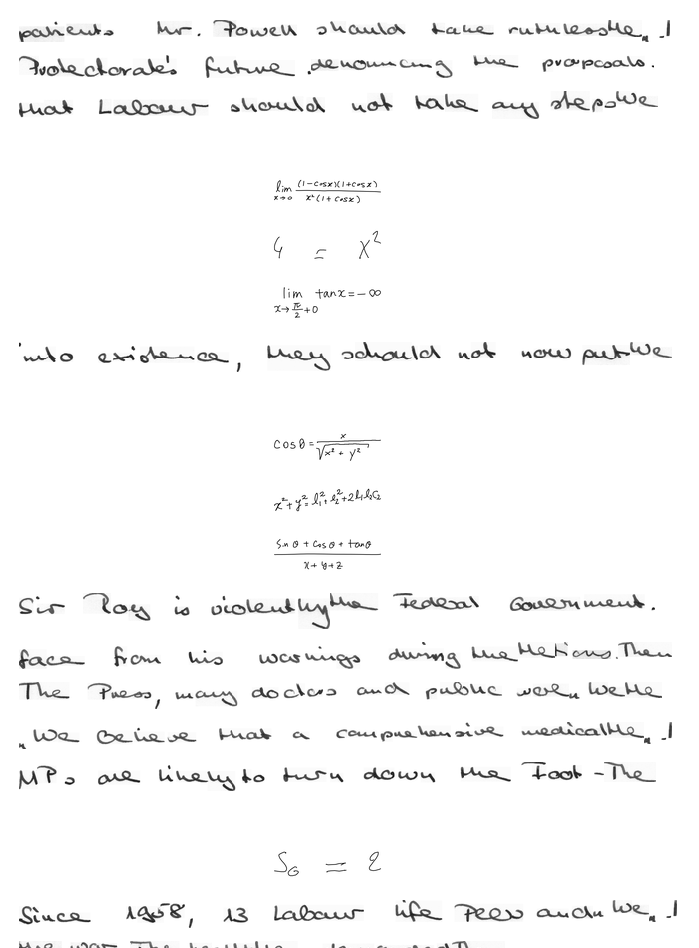 patients Mr. Powell should take ruthless the " !
Protectorate's future denouncing the proposals.
that Labour should not take any steps We
lim x→0 (1-cosx)(1+cosx) / x²(1+cosx)
4 = x²
lim x→π/2+0 tanx=-∞
into existence, they should not now put We
cosθ = x / √(x² + y²)
x²+y²=l₁²+l₂²+2l₁l₂C₂
sin θ + cos θ + tanθ / x+y+z
Sir Roy is violently the Federal Government.
face from his warnings during the Then
The Press, many doctors and public were We
"We believe that a comprehensive medical the " !
MPs are likely to turn down the Foot - The
S₀ = 2
Since 1958, 13 Labour life Peers and We " !